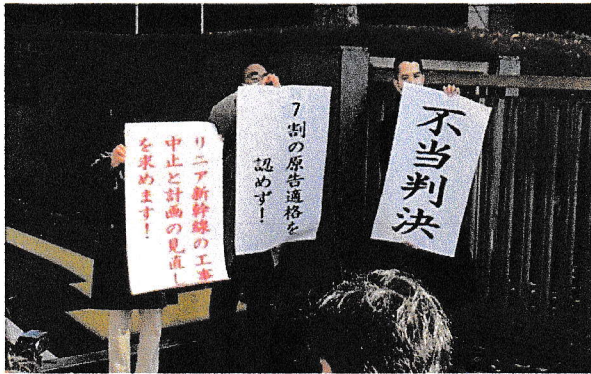 不当判決
7割の原告適格を
認めず!
リニア新幹線の工事
中止と計画の見直し
を求めます!